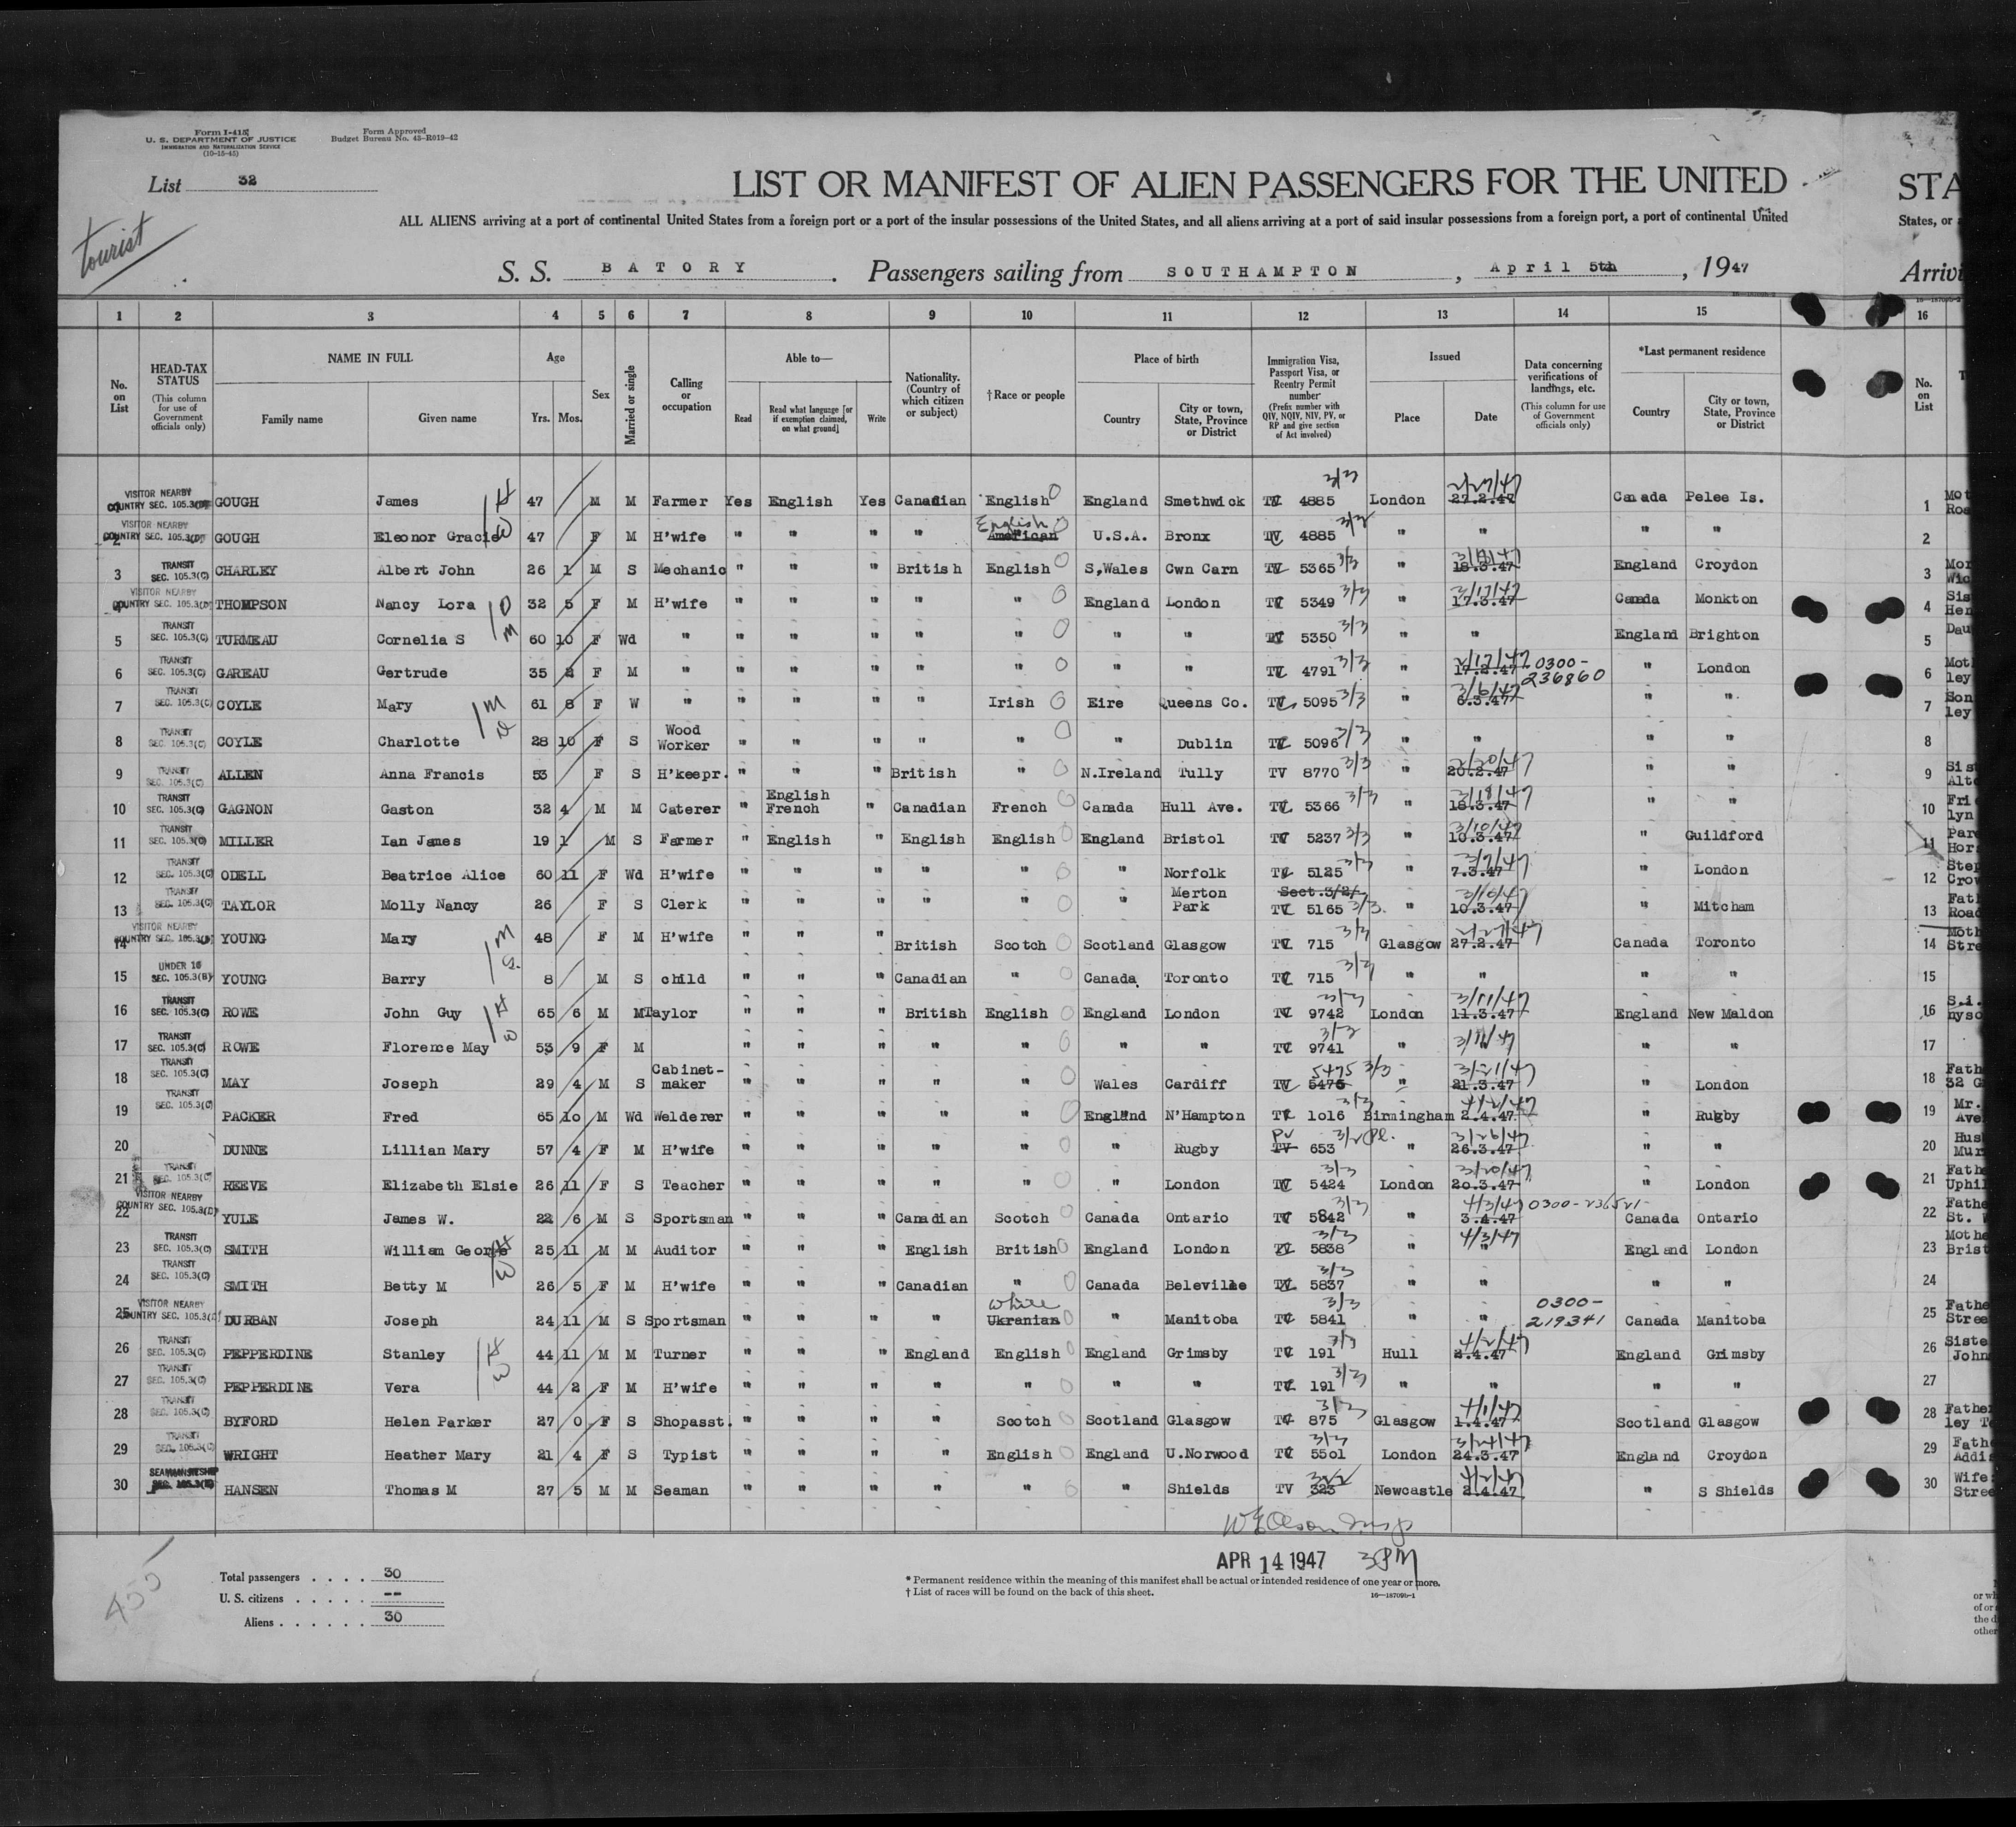 Form I-415
U. S. DEPARTMENT OF JUSTICE
IMMIGRATION AND NATURALIZATION SERVICE
(10-15-45)
Form Approved
Budget Bureau No. 43-R019-42
List 32
tourist
LIST OR MANIFEST OF ALIEN PASSENGERS FOR THE UNITED STA
ALL ALIENS arriving at a port of continental United States from a foreign port or a port of the insular possessions of the United States, and all aliens arriving at a port of said insular possessions from a foreign port, a port of continental United States, or
S. S. BATORY. Passengers sailing from SOUTHAMPTON, April 5th, 1947 Arrivi
1 2 3 4 5 6 7 8 9 10 11 12 13 14 15 16
No. on List
HEAD-TAX STATUS (This column for use of Government officials only)
NAME IN FULL Family name Given name
Age Yrs. Mos.
Sex
Married or single
Calling or occupation
Able to— Read Read what language [or if exemption claimed, on what ground] Write
Nationality. (Country of which citizen or subject)
†Race or people
Place of birth Country City or town, State, Province or District
Immigration Visa, Passport Visa, or Reentry Permit number (Prefix number with QIV, NQIV, NIV, PV, or RP and give section of Act involved)
Issued Place Date
Data concerning verifications of landings, etc. (This column for use of Government officials only)
*Last permanent residence Country City or town, State, Province or District
No. on List
VISITOR NEARBY COUNTRY SEC. 105.3(D) GOUGH James 47 M M Farmer Yes English Yes Canadian English England Smethwick TV 4885 3/3 London 2/27/47 27.2.47 Canada Pelee Is. 1
2 VISITOR NEARBY COUNTRY SEC. 105.3(D) GOUGH Eleonor Gracie 47 F M H'wife " " " " English American U.S.A. Bronx TV 4885 3/2 " " " " 2
3 TRANSIT SEC. 105.3(C) CHARLEY Albert John 26 1 M S Mechanic " " " British English S,Wales Cwn Carn TV 5365 3/3 " 3/18/47 18.3.47 England Croydon 3
VISITOR NEARBY COUNTRY SEC. 105.3(D) THOMPSON Nancy Lora 32 5 F M H'wife " " " " " England London TV 5349 3/3 " 3/17/47 17.3.47 Canada Monkton 4
5 TRANSIT SEC. 105.3(C) TURMEAU Cornelia S 60 10 F Wd " " " " " " " " TV 5350 3/3 " " England Brighton 5
6 TRANSIT SEC. 105.3(C) GAREAU Gertrude 35 2 F M " " " " " " " " TV 4791 3/3 " 2/17/47 17.2.47 0300-236860 " London 6
7 TRANSIT SEC. 105.3(C) COYLE Mary 61 8 F W " " " " " Irish Eire Queens Co. TV 5095 3/3 " 3/6/47 6.3.47 " " 7
8 TRANSIT SEC. 105.3(C) COYLE Charlotte 28 10 F S Wood Worker " " " " " " Dublin TV 5096 3/3 " " " " 8
9 TRANSIT SEC. 105.3(C) ALLEN Anna Francis 53 F S H'keepr. " " " British " N.Ireland Tully TV 8770 3/3 " 2/20/47 20.2.47 " " 9
10 TRANSIT SEC. 105.3(C) GAGNON Gaston 32 4 M M Caterer " English French " Canadian French Canada Hull Ave. TV 5366 3/3 " 3/18/47 18.3.47 " " 10
11 TRANSIT SEC. 105.3(C) MILLER Ian James 19 1 M S Farmer " English " English English England Bristol TV 5237 3/3 " 3/10/47 10.3.47 " Guildford 11
12 TRANSIT SEC. 105.3(C) ODELL Beatrice Alice 60 11 F Wd H'wife " " " " " " Norfolk TV 5125 3/3 " 3/7/47 7.3.47 " London 12
13 TRANSIT SEC. 105.3(C) TAYLOR Molly Nancy 26 F S Clerk " " " " " " Merton Park Sect.3/2/ TV 5165 3/3. " 3/10/47 10.3.47 " Mitcham 13
14 VISITOR NEARBY COUNTRY SEC. 105.3(D) YOUNG Mary 48 F M H'wife " " " British Scotch Scotland Glasgow TV 715 3/3 Glasgow 2/27/47 27.2.47 Canada Toronto 14
15 UNDER 16 SEC. 105.3(B) YOUNG Barry 8 M S child " " " Canadian " Canada. Toronto TV 715 3/3 " " " " 15
16 TRANSIT SEC. 105.3(C) ROWE John Guy 65 6 M M Taylor " " " British English England London TV 9742 3/3 London 3/11/47 11.3.47 England New Maldon 16
17 TRANSIT SEC. 105.3(C) ROWE Florence May 53 9 F M " " " " " " " TV 9741 3/3 " 3/11/47 " " 17
18 TRANSIT SEC. 105.3(C) MAY Joseph 29 4 M S Cabinet-maker " " " " " Wales Cardiff TV 5475 5476 3/3 " 3/21/47 21.3.47 " London 18
19 TRANSIT SEC. 105.3(C) PACKER Fred 65 10 M Wd Welderer " " " " " England N'Hampton TV 1016 3/3 Birmingham 4/2/47 2.4.47 " Rugby 19
20 DUNNE Lillian Mary 57 4 F M H'wife " " " " " " Rugby PV TV 653 3/2 " 3/26/47 26.3.47 " " 20
21 TRANSIT SEC. 105.3(C) REEVE Elizabeth Elsie 26 11 F S Teacher " " " " " " London TV 5424 3/3 London 3/20/47 20.3.47 " London 21
22 VISITOR NEARBY COUNTRY SEC. 105.3(D) YULE James W. 22 6 M S Sportsman " " " Canadian Scotch Canada Ontario TV 5842 3/3 " 4/3/47 3.4.47 0300-236521 Canada Ontario 22
23 TRANSIT SEC. 105.3(C) SMITH William George 25 11 M M Auditor " " " English British England London TV 5838 3/3 " 4/3/47 " England London 23
24 TRANSIT SEC. 105.3(C) SMITH Betty M 26 5 F M H'wife " " " Canadian " Canada Beleville TV 5837 3/3 " " " " 24
25 VISITOR NEARBY COUNTRY SEC. 105.3(D) DURBAN Joseph 24 11 M S Sportsman " " " " White Ukranian " Manitoba TV 5841 3/3 " " 0300-219341 Canada Manitoba 25
26 TRANSIT SEC. 105.3(C) PEPPERDINE Stanley 44 11 M M Turner " " " England English England Grimsby TV 191 3/3 Hull 4/2/47 2.4.47 England Grimsby 26
27 TRANSIT SEC. 105.3(C) PEPPERDINE Vera 44 2 F M H'wife " " " " " " " TV 191 3/3 " " " " 27
28 TRANSIT SEC. 105.3(C) BYFORD Helen Parker 27 0 F S Shopasst. " " " " Scotch Scotland Glasgow TV 875 3/3 Glasgow 4/1/47 1.4.47 Scotland Glasgow 28
29 TRANSIT SEC. 105.3(C) WRIGHT Heather Mary 21 4 F S Typist " " " " English England U.Norwood TV 5501 3/3 London 3/24/47 24.3.47 England Croydon 29
30 SEC. 105.3(E) HANSEN Thomas M 27 5 M M Seaman " " " " " " Shields TV 323 Newcastle 4/2/47 2.4.47 " S Shields 30
APR 14 1947 3PM
Total passengers . . . . 30
U. S. citizens . . . . . --
Aliens . . . . . . 30
* Permanent residence within the meaning of this manifest shall be actual or intended residence of one year or more.
† List of races will be found on the back of this sheet.
16—18709b-1